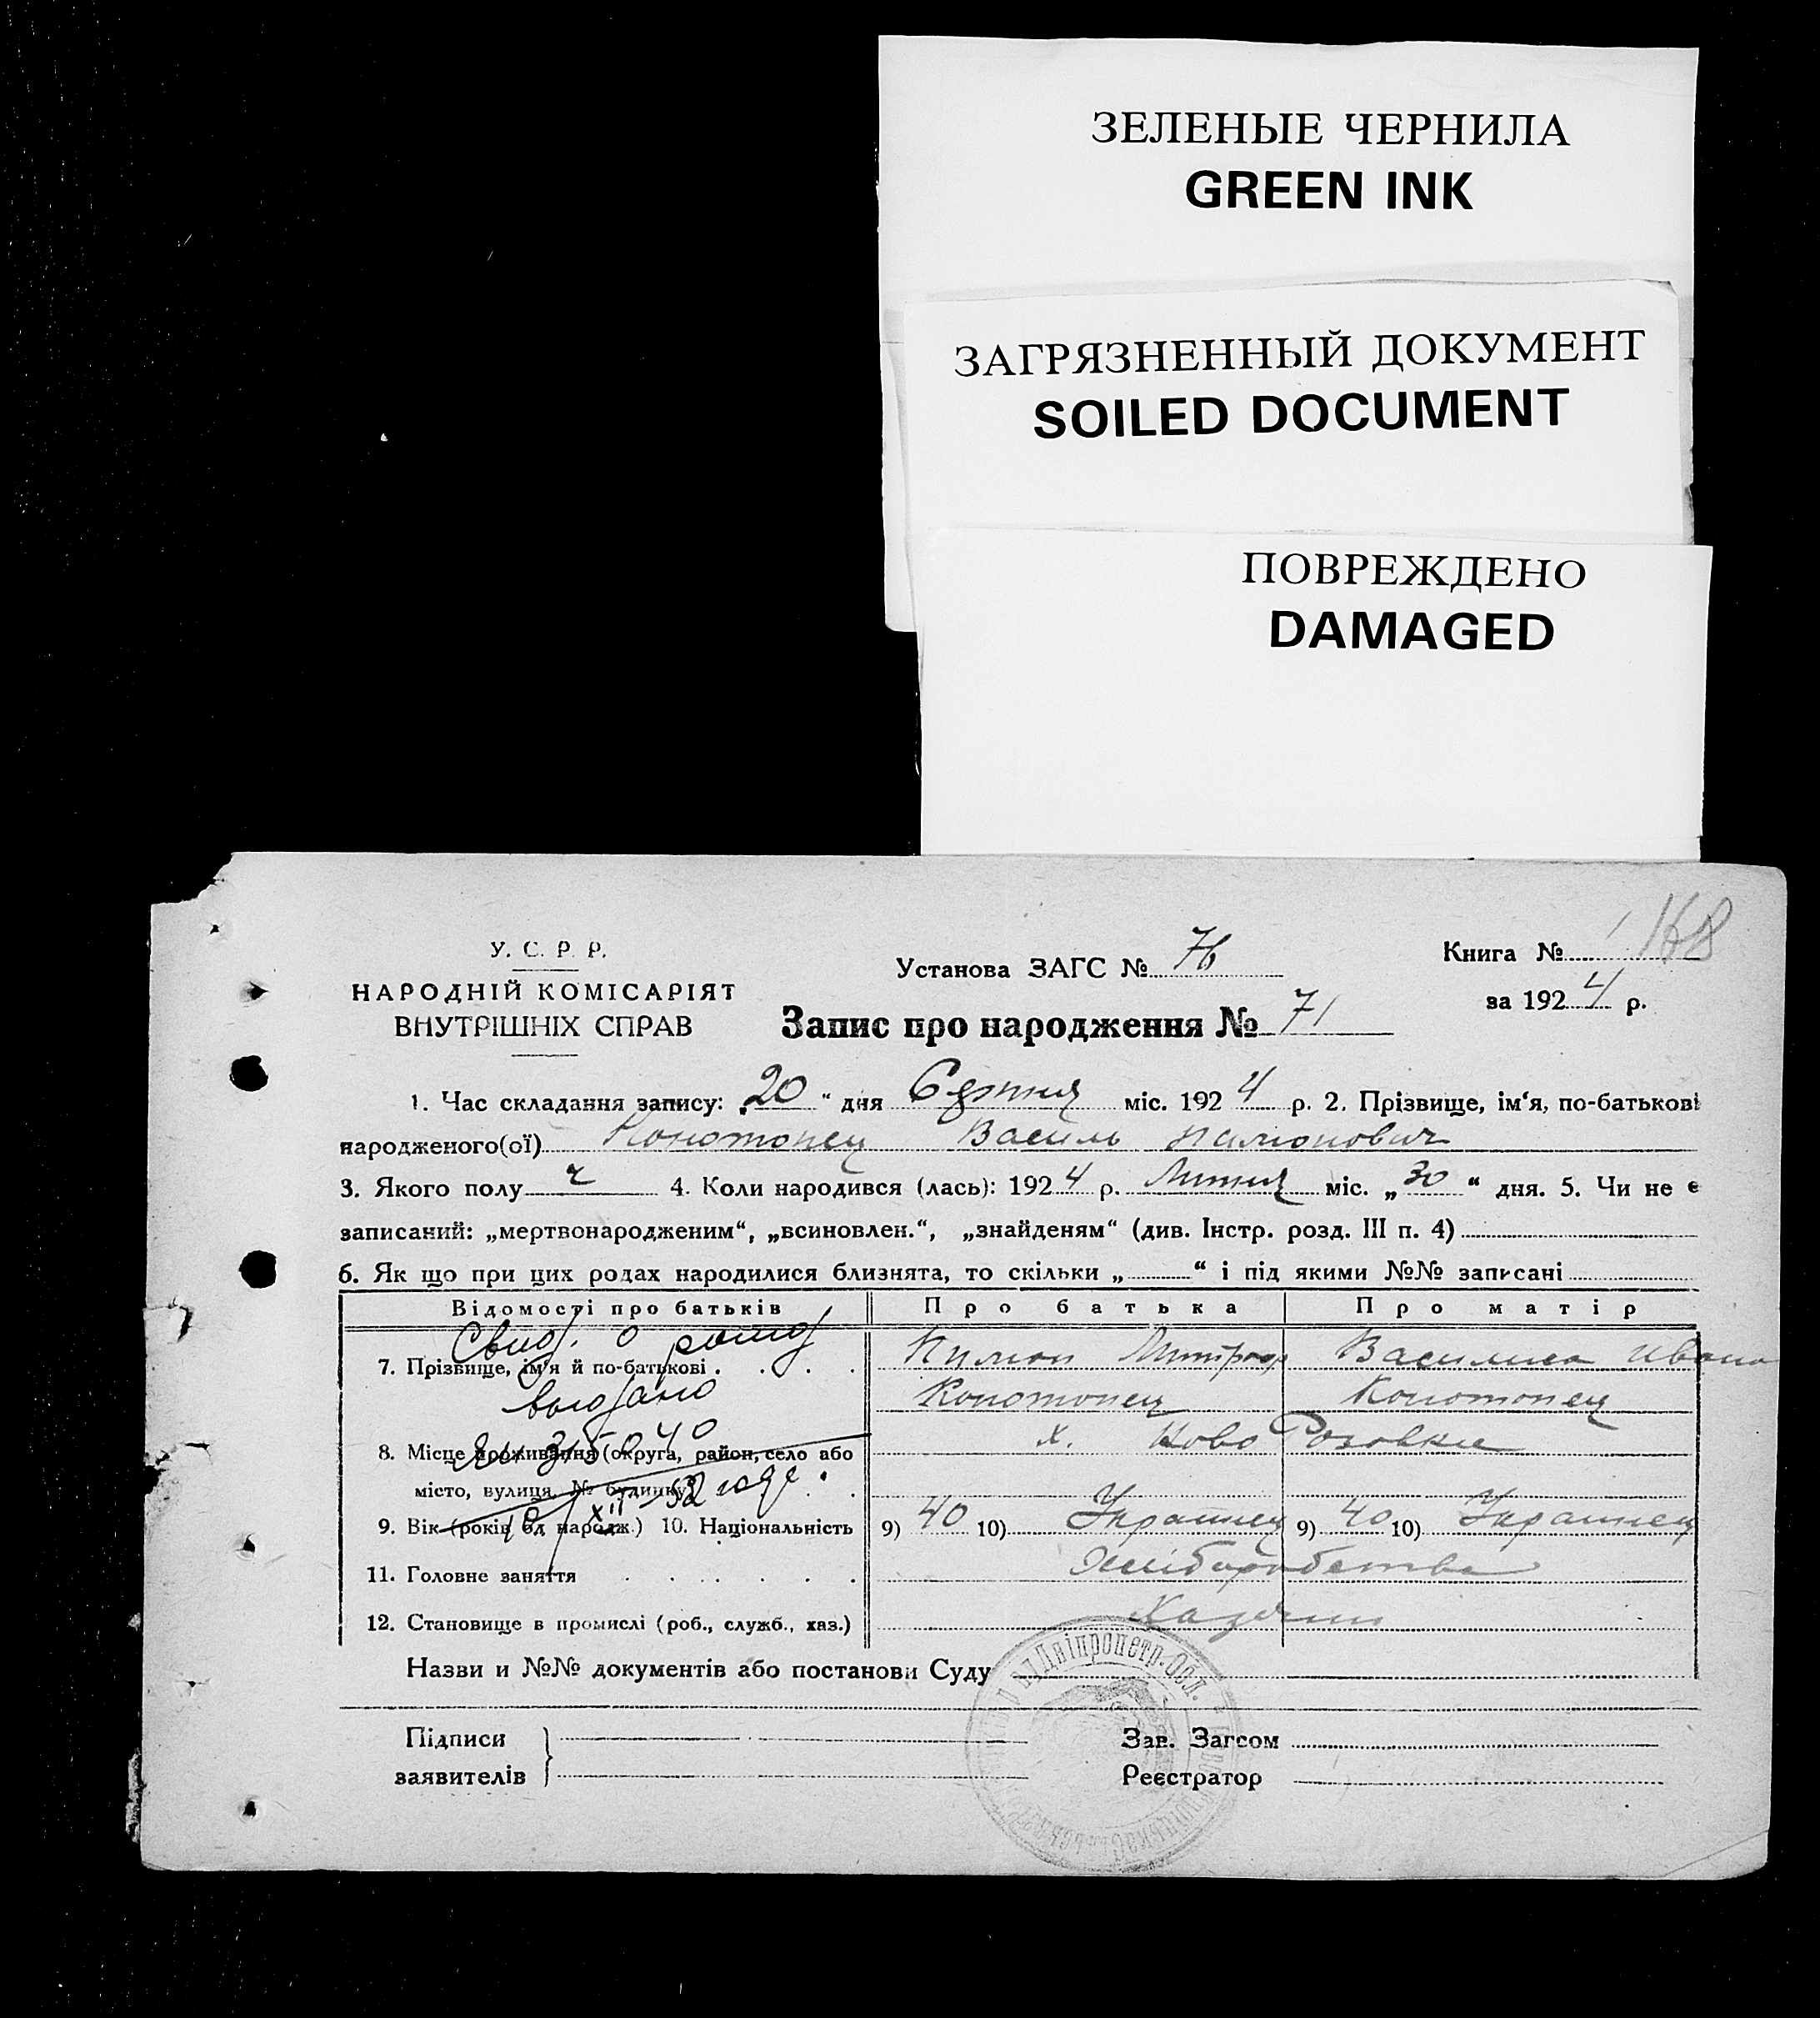 ЗЕЛЕНЫЕ ЧЕРНИЛА
GREEN INK
ЗАГРЯЗНЕННЫЙ ДОКУМЕНТ
SOILED DOCUMENT
ПОВРЕЖДЕНО
DAMAGED
168
У. С. Р. Р.
НАРОДНІЙ КОМІСАРІЯТ
ВНУТРІШНІХ СПРАВ
Установа ЗАГС № 76
Книга №
за 1924 р.
Запис про народження № 71
1. Час складання запису: „20“ дня Серпня міс. 1924 р. 2. Прізвище, ім'я, по-батькові
народженого(ої) Конотопец Василь Пилипович
3. Якого полу ч 4. Коли народився (лась): 1924 р. Липня міс. „30“ дня. 5. Чи не є
записаний: „мертвонародженим“, „всиновлен.“, „знайденям“ (див. Інстр. розд. III п. 4)
6. Як що при цих родах народилися близнята, то скільки „ “ і під якими №№ записані
Відомості про батьків Про батька Про матір
Свид. о рожд
7. Прізвище, ім'я й по-батькові Пилип Митроф Василиса Ивано
выдано
Конотопец Конотопец
8. Місце проживання (округа, район, село або х. Ново Розовка
місто, вулиця, № будинку)
9. Вік (років од народж.) 10. Національність 9) 40 10) Украинец 9) 40 10) Украинец
11. Головне заняття Хліборобство
12. Становище в промислі (роб., служб., хаз.) Хазяин
Назви и №№ документів або постанови Суду
Підписи
заявителів
Зав. Загсом
Реєстратор
Дніпропетр. Обл.